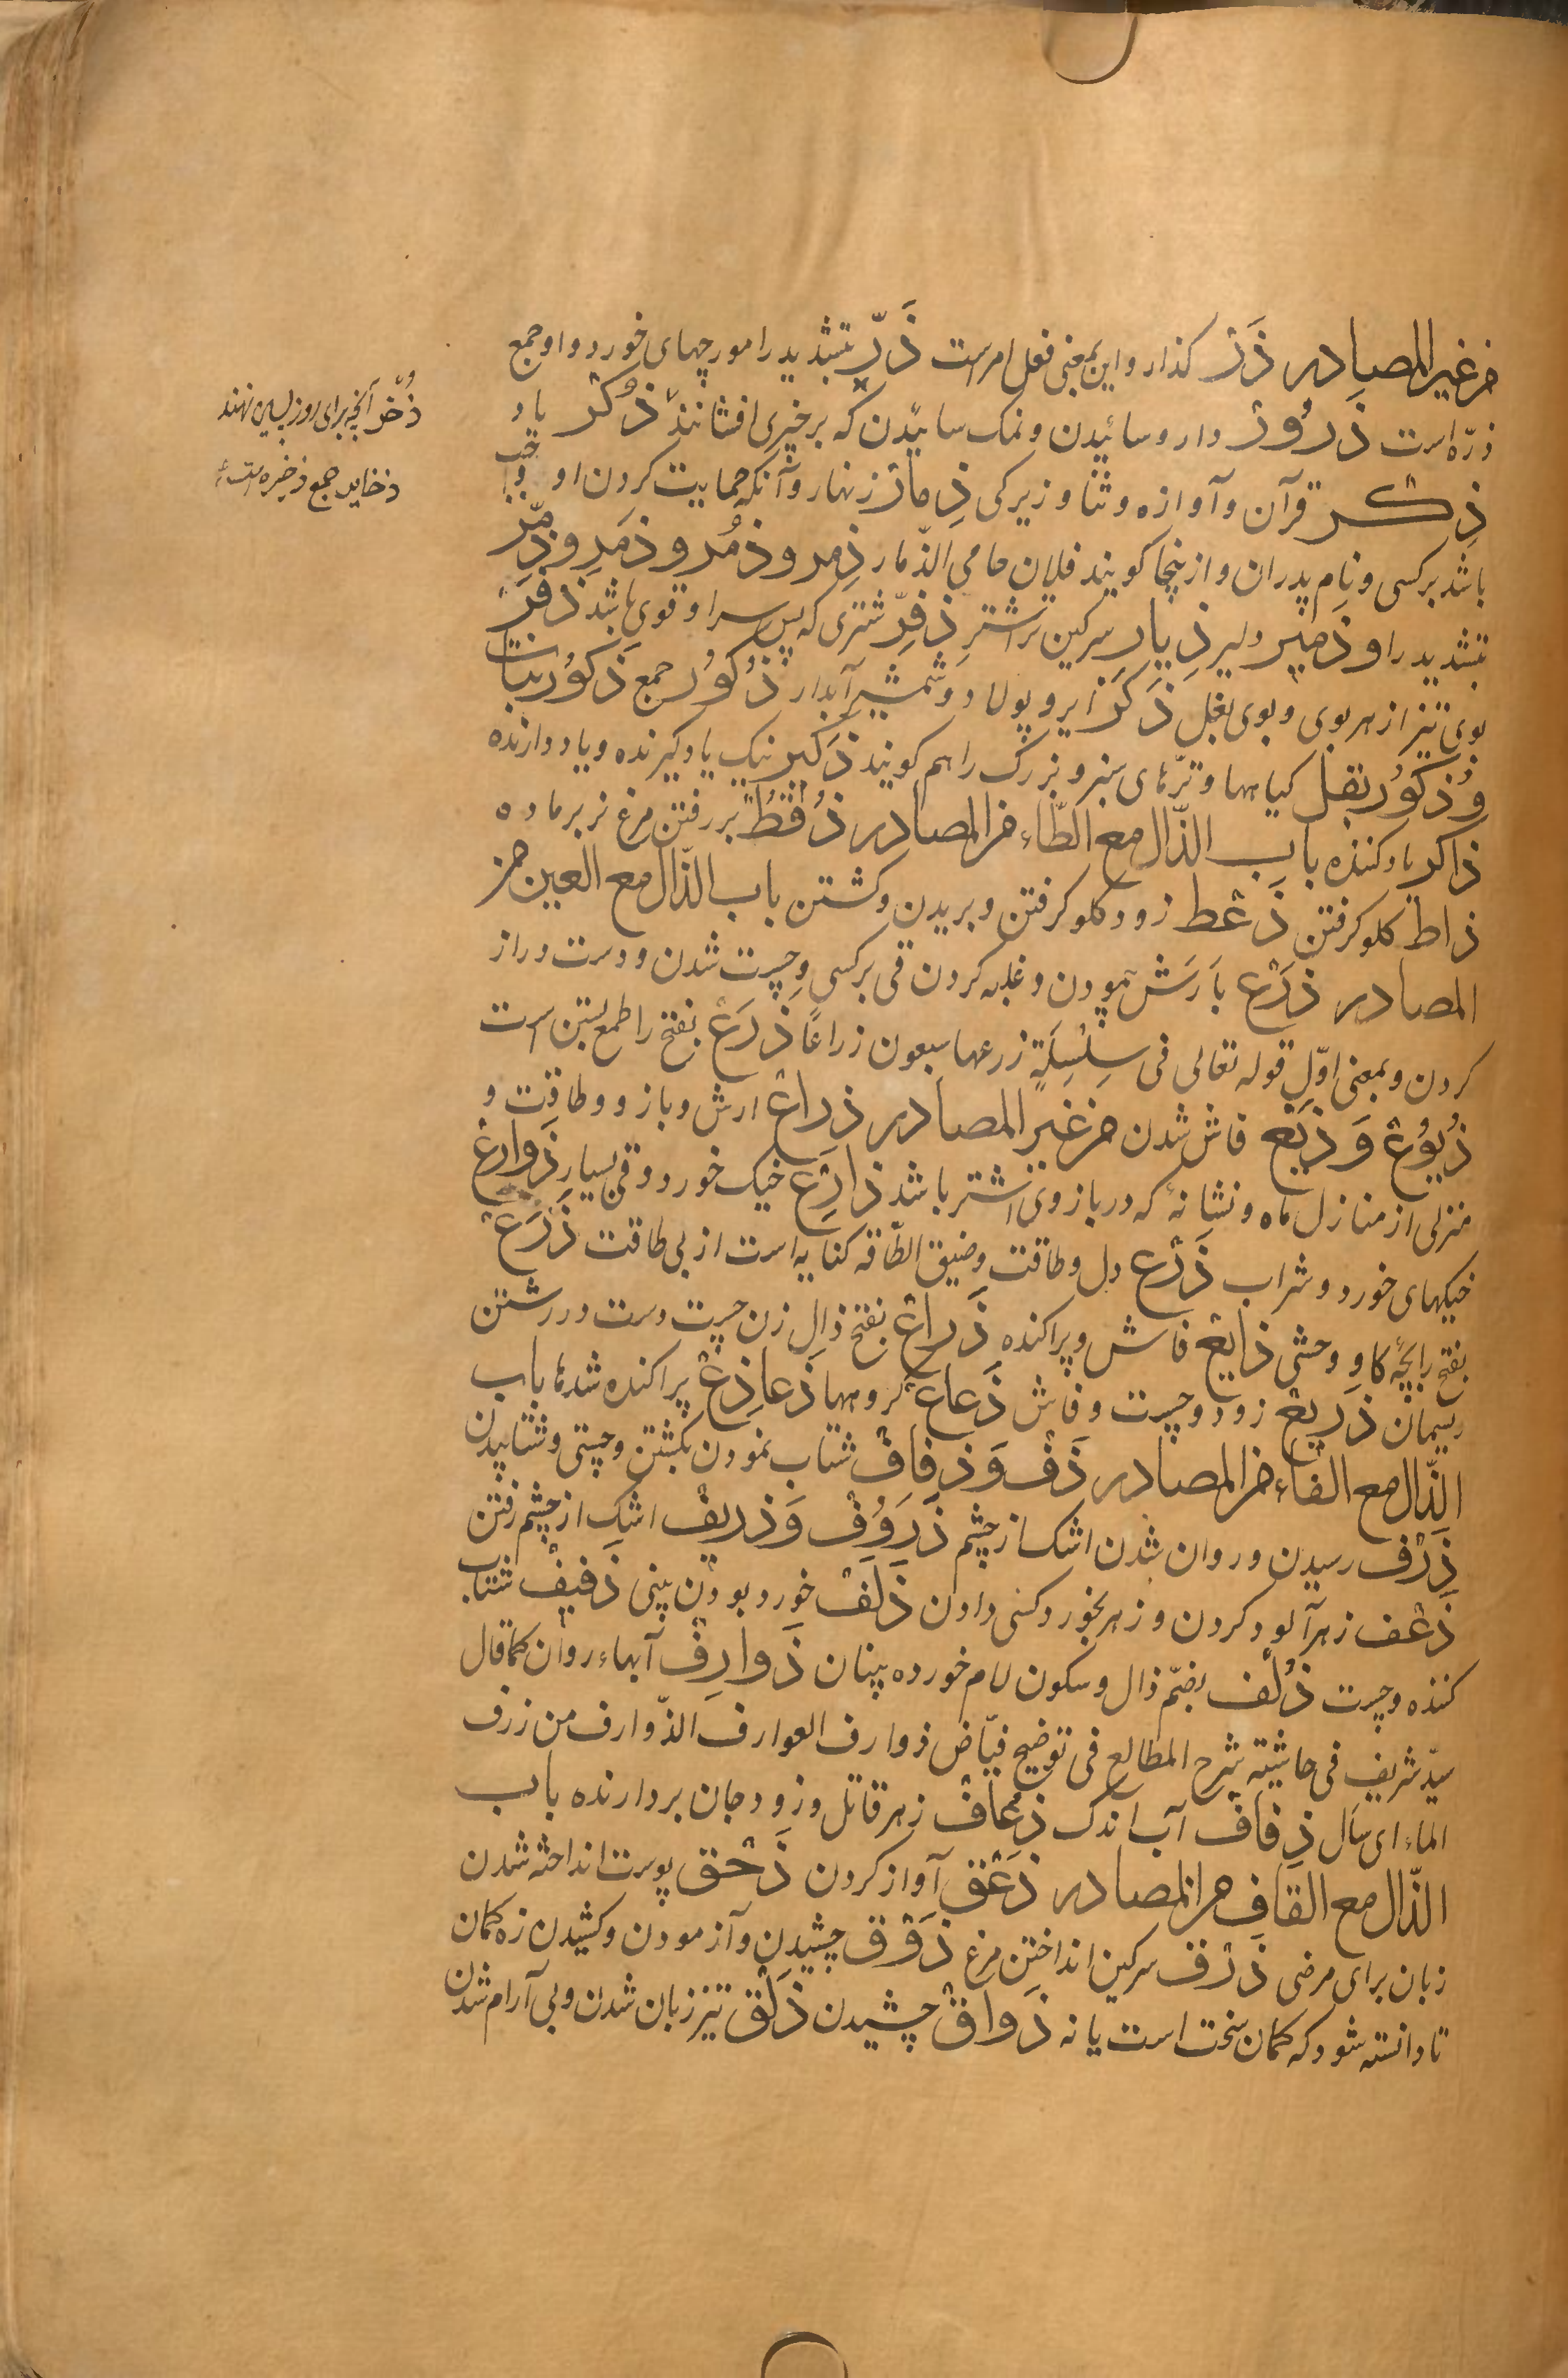 من غیر المصادر ذَرْ کذار و این بمعنی فعل امر است ذَرّ بتشدید را مورچهای خورد و او جمع
ذرّه است ذَرُوْر دارو سائیدن و نمک سائیدن که بر چیزی افشانند ذُکْر یاد
ذِکر قرآن و آوازه و ثنا و زیرکی ذِمار زنهار و آنکه حمایت کردن او واجب
باشد بر کسی و نام پدران و از ینجا کویند فلان حامی الذّمار ذِمر و ذمُر و ذمَرِ و ذِمِّر
بتشدید را و ذَمیر دلیر ذِیار سرکین تر اشتر ذِفِرّ شتری که پس سر او قوی باشد ذفَر
بوی تیز از هر بوی و بوی بغل ذَکَر ایر و پولاد و شمشیر آبدار ذُکوُر جمع ذکوُر نبات
و ذکوُر بقل کیاهها و ترّهای سبز و بزرک را هم کویند ذَکیر نیک یاد کیرنده و یاد دارنده
ذاکر یاد کننده باب الذّال مع الطّاء من المصادر ذُقْطُ بر رفتن مرغ نر بر ماده
ذاط کلو کرفتن ذَعْط زود کلو کرفتن و بریدن و کشتن باب الذّال مع العین من
المصادر ذَرْع بارَش پیمودن و غلبه کردن قی بر کسی و چست شدن و دست دراز
کردن و بمعنی اوّل قوله تعالی فی سِلْسِلَةٍ ذرعها سبعون ذراعًا ذَرَعْ بفتح را طمع بستن است
ذُیوُعْ وَ ذَیْع فاش شدن من غیر المصادر ذِراع ارش و بازو و طاقت و
منزلی از منازل ماه و نشانهٔ که در بازوی اشتر باشد ذارِع خیک خورد و قی بسیار ذَوارع
خیکهای خورد و شراب ذَرْع دل و طاقت و ضیق الطّاقه کنایه است از بی طاقت ذَرَع
بفتح را بچّهٔ کاو وحشی ذایع فاش و پراکنده ذَراع بفتح ذال زن چست دست در رشتن
ریسمان ذَریع زود و چست و فاش ذَعاع کروهها ذَعاذِع پراکنده شدها باب
الذّال مع الفاء من المصادر ذَفْ وَ ذِفافْ شتاب نمودن بکشتن و چستی و شتابیدن
ذَرْف رسیدن و روان شدن اشک از چشم ذَرَوُفْ وَ ذریف اشک از چشم رفتن
ذَعْف زهر آلود کردن و زهر بخورد کسی دادن ذَلَفْ خورد بودن بینی ذَفیفْ شتاب
کننده و چست ذُلْف بضمّ ذال و سکون لام خورده بینان ذَوارِفْ آبهاء روان کما قال
سیّد شریف فی حاشیته شرح المطالع فی توضیح فیّاض ذوارف العوارف الذّوارف من ذرف
الماء ای سال ذِفاف آب اندک ذعافْ زهر قاتل و زود جان بردارنده باب
الذّال مع القاف من المصادر ذَعْق آواز کردن ذَحْق پوست انداخته شدن
زبان برای مرضی ذَرْق سرکین انداختن مرغ ذَوْق چشیدن و آزمودن و کشیدن زه کمان
تا دانسته شود که کمان سخت است یا نه ذَواق چشیدن ذَلْق تیز زبان شدن و بی آرام شدن
ذُخْر آنچه برای روز پسین نهند
ذخایر جمع ذخیره است